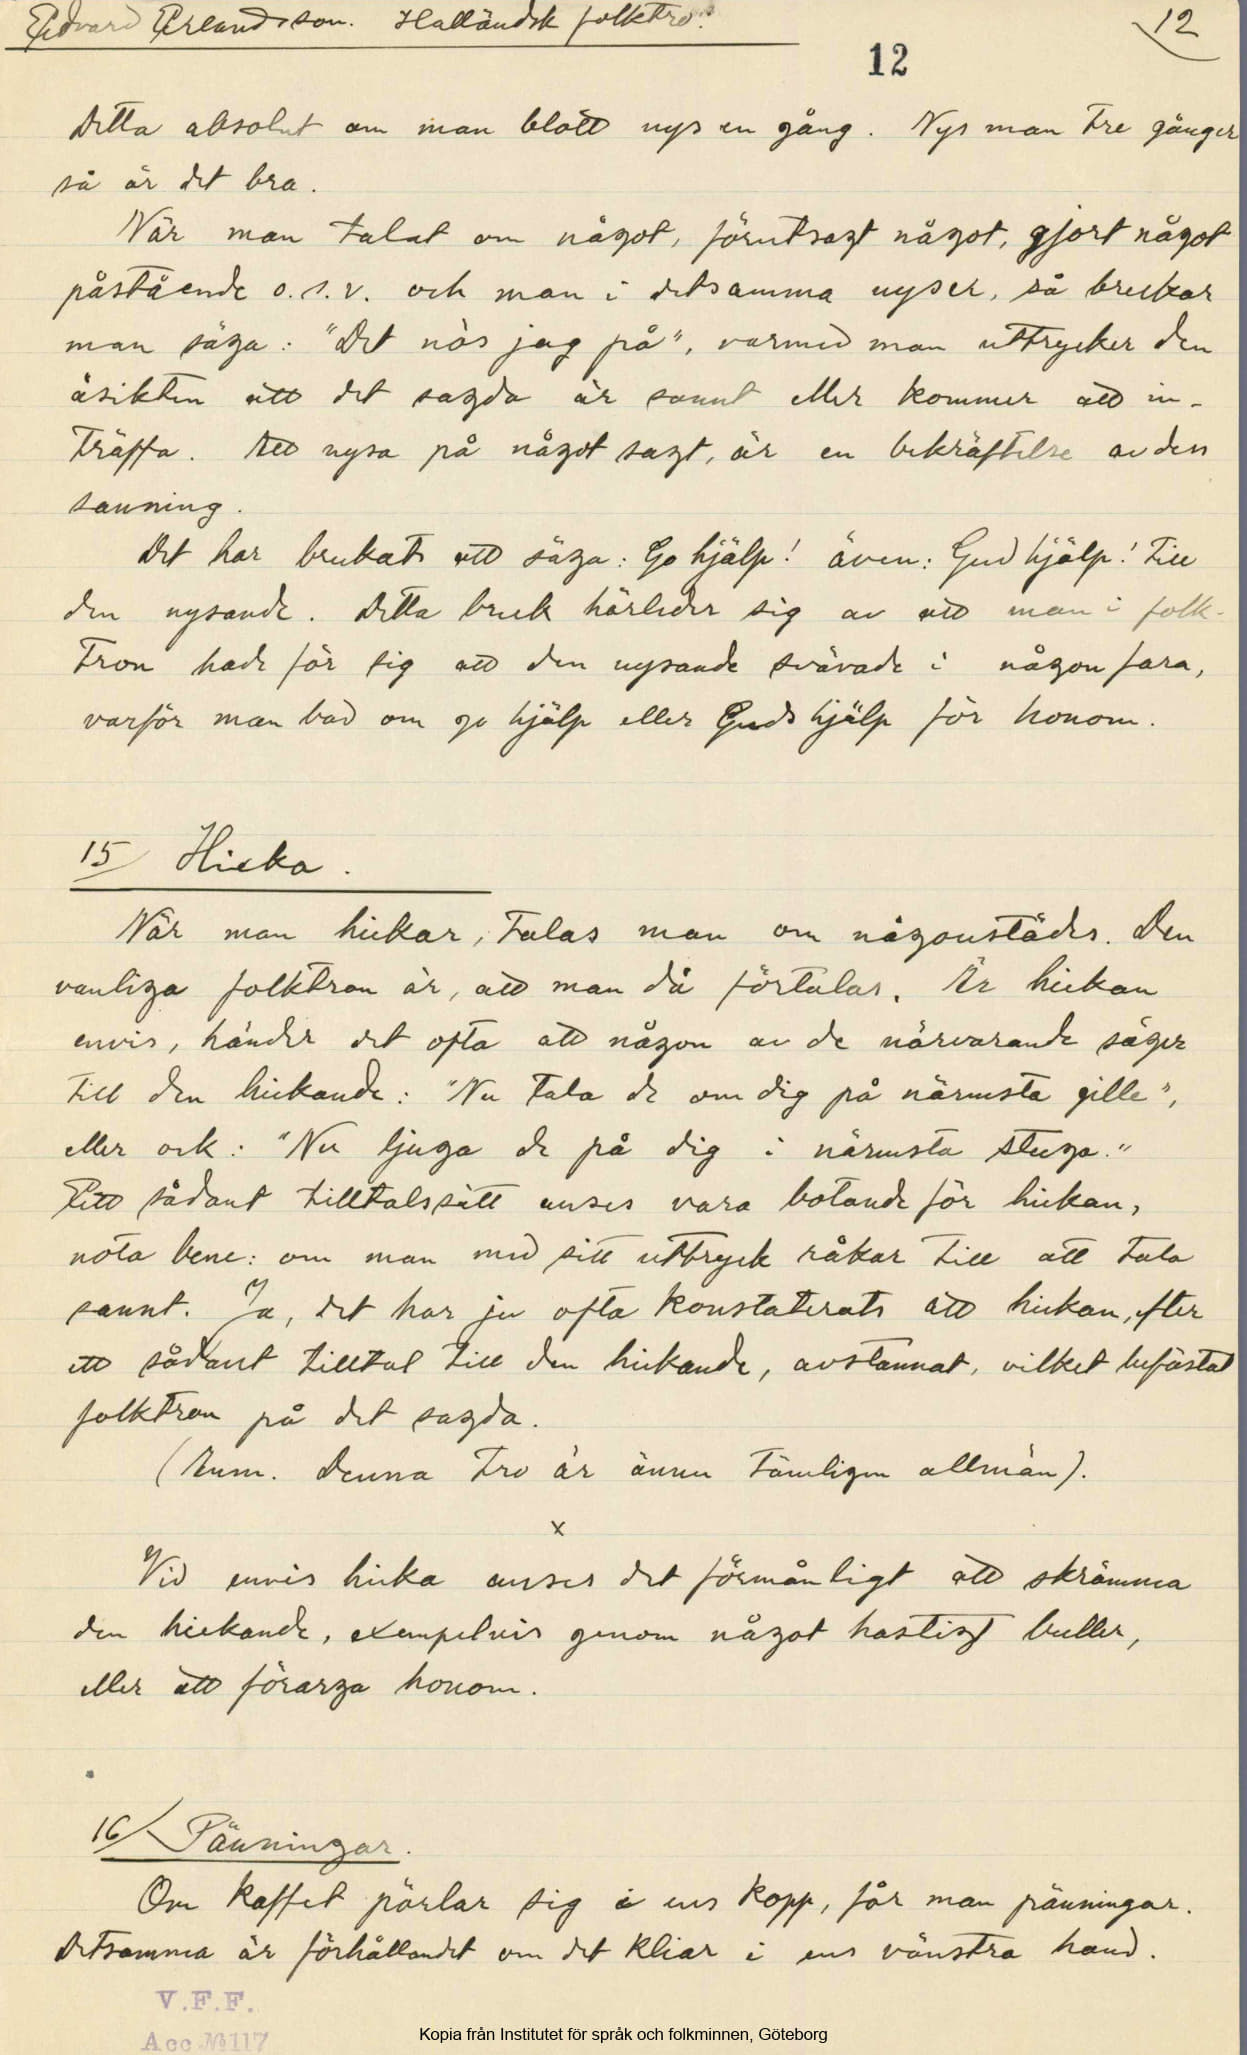 Edvard Erlandsson. Halländsk folktro.
12
12
Detta absolut om man blott nys en gång. Nys man tre gånger
så är det bra.
När man talat om något, förutsagt något, gjort något
påstående o.s.v. och man i detsamma nyser, så brukar
man säga: "Det nös jag på", varmed man uttrycker den
åsikten att det sagda är sannt eller kommer att in-
träffa. Att nysa på något sagt, är en bekräftelse av dess
sanning.
Det har brukats att säga: Go hjälp! även: Gud hjälp! till
den nysande. Detta bruk härleder sig av att man i folk-
tron hade för sig att den nysande svävade i någon fara,
varför man bad om go hjälp eller Guds hjälp för honom.
15/ Hicka.
När man hickar, talas man om någonstädes. Den
vanliga folktron är, att man då förtalas. Är hickan
envis, händer det ofta att någon av de närvarande säger
till den hickande: "Nu tala de om dig på närmsta gille",
eller ock: "Nu ljuga de på dig i närmsta stuga."
Ett sådant tilltalssätt anses vara botande för hickan,
nota bene: om man med sitt uttryck råkar till att tala
sannt. Ja, det har ju ofta konstaterats att hickan, efter
ett sådant tilltal till den hickande, avstannat, vilket befästat
folktron på det sagda.
(Anm. Denna tro är ännu tämligen allmän).
x
Vid envis hicka anses det förmånligt att skrämma
den hickande, exempelvis genom något hastigt buller,
eller att förarga honom.
16/ Pänningar.
Om kaffet pärlar sig i ens kopp, får man pänningar.
Detsamma är förhållandet om det kliar i ens vänstra hand.
V.F.F.
Acc №117
Kopia från Institutet för språk och folkminnen, Göteborg